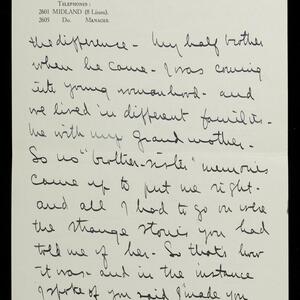 TELEPHONES:
2601 MIDLAND (8 Lines).
2605 Do. MANAGER.
the difference - My half brother
when he came - I was coming
into young womanhood - and
we lived in different families -
he with my Grand mother.
So no "brother-sister" memories
came up to put me right -
and all I had to go on were
the strange stories you had
told me of her. So thats how
it was - and in the instance
I spoke of you said I made you